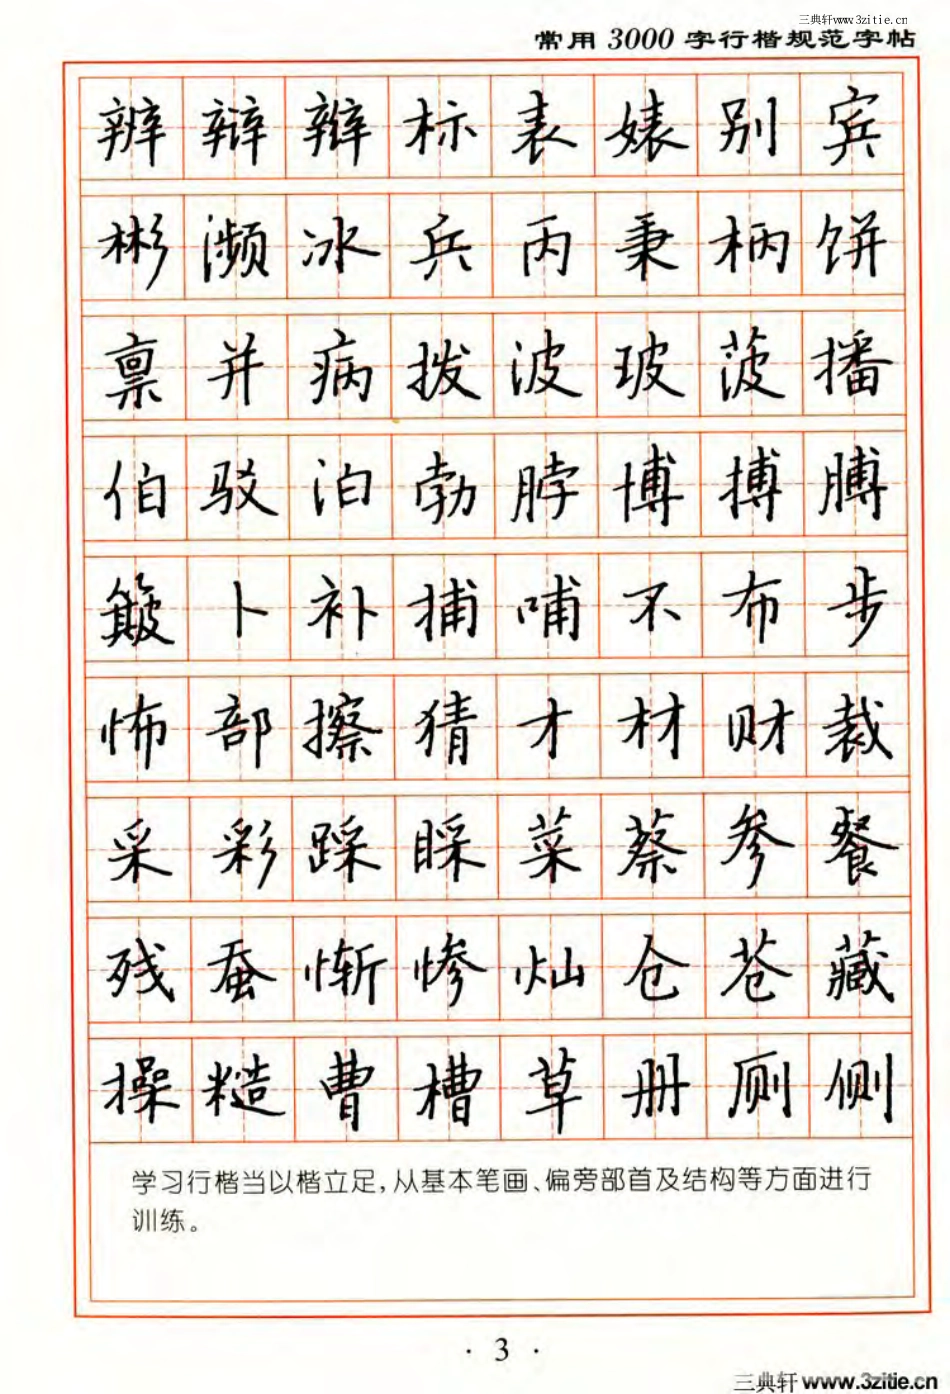 三典轩www.3zitie.cn
常用3000字行楷规范字帖
辨辩辫标表婊别宾
彬濒冰兵丙秉柄饼
禀并病拨波玻菠播
伯驳泊勃脖博搏膊
簸卜补捕哺不布步
怖部擦猜才材财裁
采彩踩睬菜蔡参餐
残蚕惭惨灿仓苍藏
操糙曹槽草册厕侧
学习行楷当以楷立足,从基本笔画、偏旁部首及结构等方面进行
训练。
· 3 ·
三典轩 www.3zitie.cn